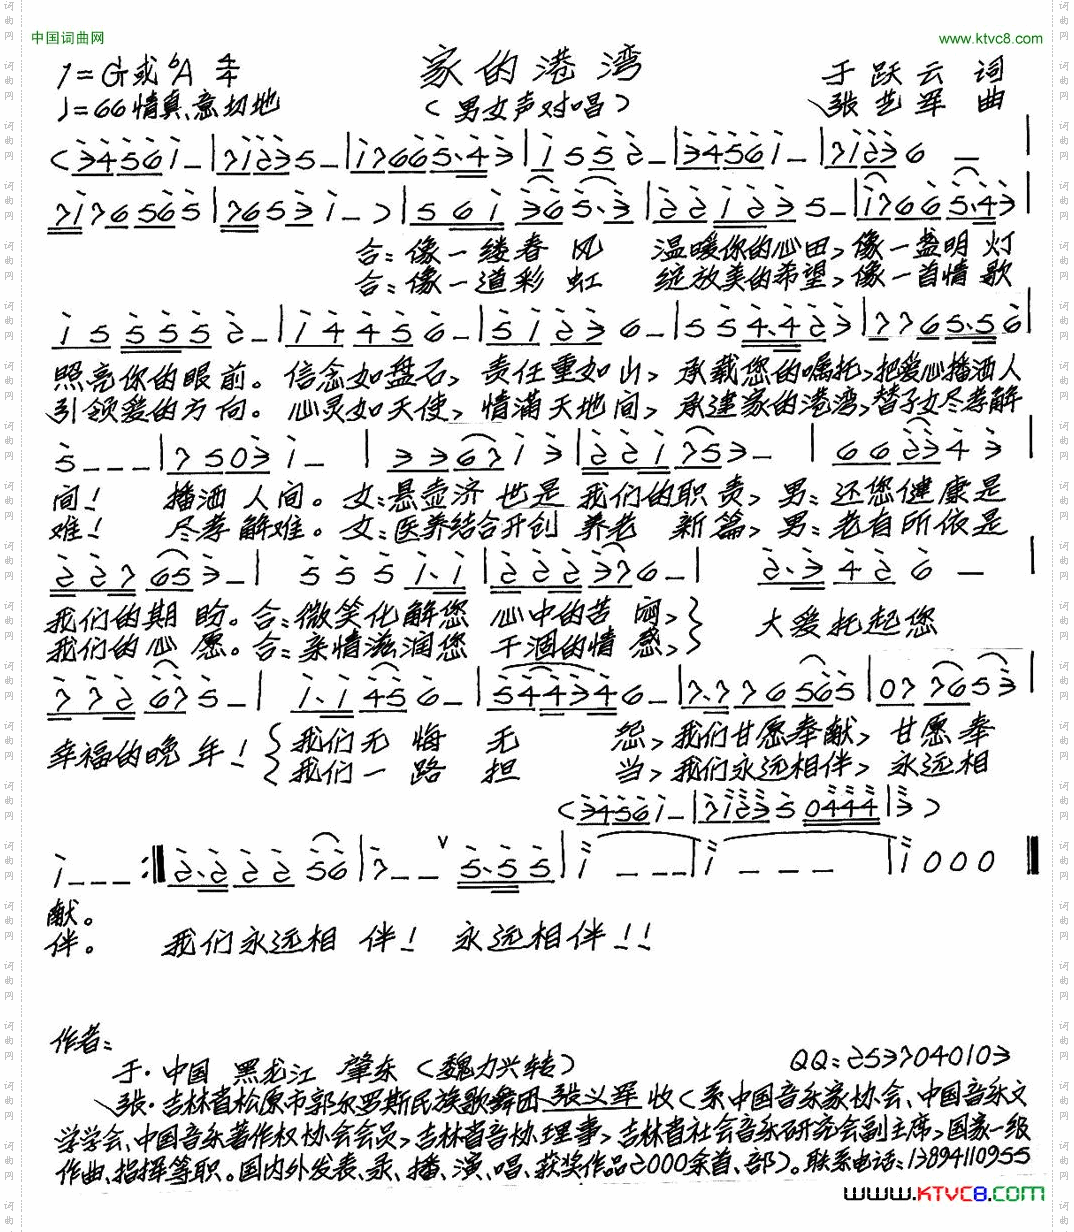 中国词曲网
www.ktvc8.com
1=G或bA 4/4
家的港湾
于跃云 词
♩=66 情真、意切地
(男女声对唱)
张艺军 曲
(34561̇ - | 71̇235 - | 1̇7665.43 | 1̇552 - | 34561̇ - | 71̇236 - |
71̇76565 | 76531̇ - ) | 561̇365.3 | 221̇235 - | 1̇7665.43 |
合:像一缕春风 温暖你的心田,像一盏明灯
合:像一道彩虹 绽放美的希望,像一首情歌
1̇55552 - | 1̇4456 - | 51̇236 - | 554.423 | 7765.56 |
照亮你的眼前。信念如盘石,责任重如山,承载您的嘱托,把爱心播洒人
引领爱的方向。心灵如天使,情满天地间,承建家的港湾,替子女尽孝解
5 - - - | 75031̇ - | 33671̇3 | 221̇753 - | 662343 |
间! 播洒人间。女:悬壶济世是我们的职责,男:还您健康是
难! 尽孝解难。女:医养结合开创养老新篇,男:老有所依是
227653 - | 5551̇.1̇ | 222376 - | 2.3426 - |
我们的期盼。合:微笑化解您 心中的苦闷,} 大爱托起您
我们的心愿。合:亲情滋润您 干涸的情感,}
772675 - | 1̇.1̇456 - | 544346 - | 7.776565 | 077653 |
幸福的晚年! {我们无悔无怨,我们甘愿奉献,甘愿奉
{我们一路担当,我们永远相伴,永远相
(34561̇ - | 71̇2350444 | 3)
1̇ - - - :‖ 2.22256 | 7 - - ∨ 5.55 | 1̇ - - - | 1̇ - - - | 1̇000 ‖
献。
伴。 我们永远相伴! 永远相伴!!
作者:
于·中国 黑龙江 肇东 (魏力兴转) QQ:2537040103
张·吉林省松原市郭尔罗斯民族歌舞团 张义军 收(系中国音乐家协会、中国音乐文
学学会、中国音乐著作权协会会员,吉林省音协理事,吉林省社会音乐研究会副主席,国家一级
作曲、指挥等职。国内外发表、录、播、演、唱、获奖作品2000余首、部)。联系电话:13894110955
www.KTVC8.com